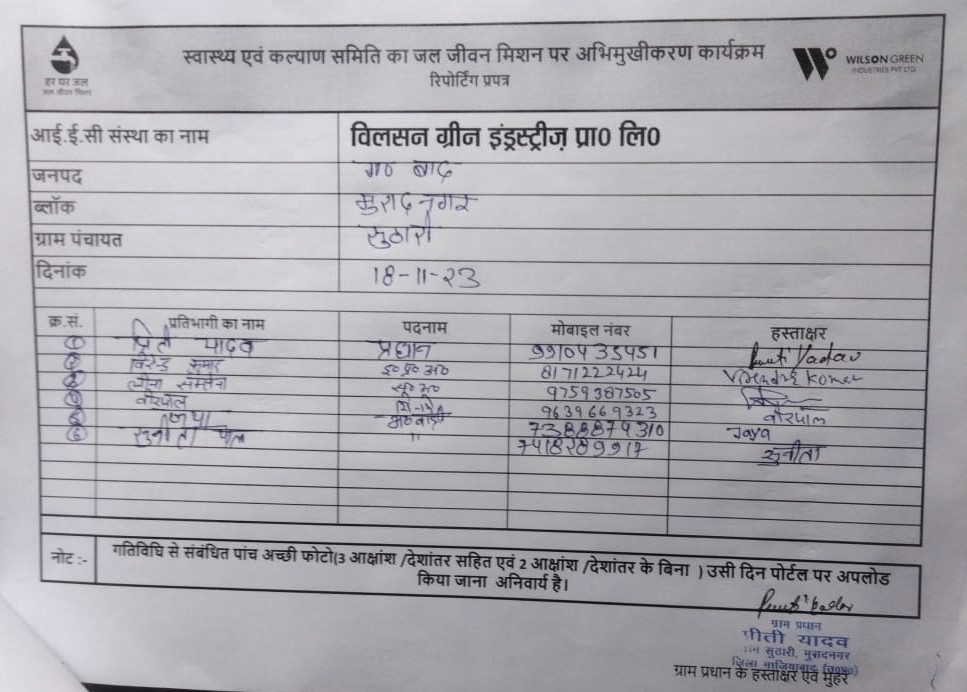 हर घर जल
जल जीवन मिशन
स्वास्थ्य एवं कल्याण समिति का जल जीवन मिशन पर अभिमुखीकरण कार्यक्रम
रिपोर्टिंग प्रपत्र
WILSON GREEN
INDUSTRIES PVT LTD
आई.ई.सी संस्था का नाम विलसन ग्रीन इंड्रस्ट्रीज़ प्रा0 लि0
जनपद गा0 बाद
ब्लॉक मुरादनगर
ग्राम पंचायत सुठारी
दिनांक 18-11-23
क्र.सं. प्रतिभागी का नाम पदनाम मोबाइल नंबर हस्ताक्षर
1 प्रिती यादव प्रधान 9910435451
2 विरेन्द्र कुमार इ०प्र०अ० 8171222424 Virendra Komar
3 स०अ० 9759387505
4 वीरपाल 9639669323 वीरपाल
5 जया 7388874310 Jaya
6 सुनीता पाल " 7418289917 सुनीता
नोट :- गतिविधि से संबंधित पांच अच्छी फोटो(3 आक्षांश /देशांतर सहित एवं 2 आक्षांश /देशांतर के बिना ) उसी दिन पोर्टल पर अपलोड
किया जाना अनिवार्य है।
ग्राम प्रधान
प्रीती यादव
सुठारी, मुरादनगर
जिला गाजियाबाद (उ०प्र०)
ग्राम प्रधान के हस्ताक्षर एवं मुहर